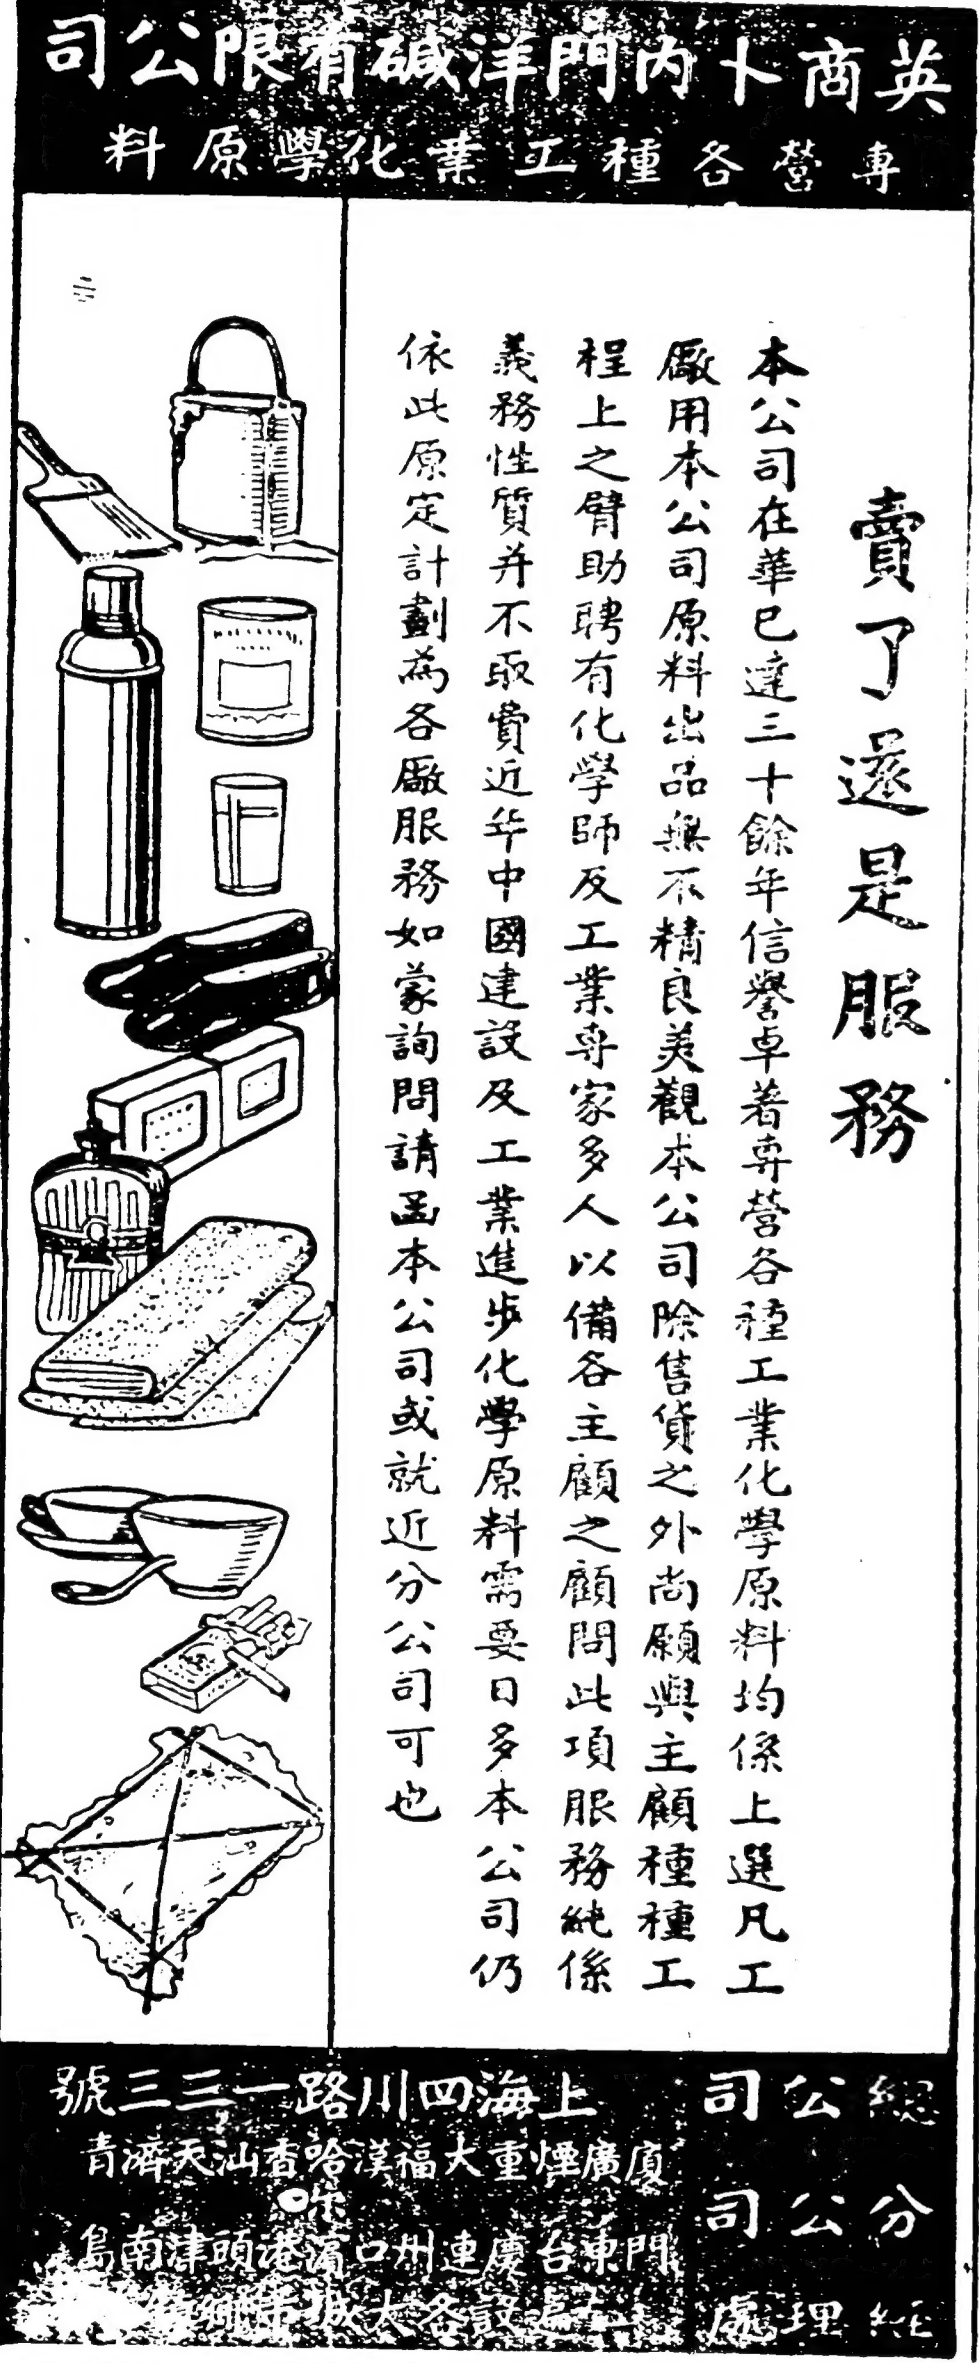 英商卜內門洋碱有限公司
專營各種工業化學原料
賣了還是服務
本公司在華已達三十餘年信譽卓著專營各種工業化學原料均係上選凡工
廠用本公司原料出品無不精良美觀本公司除售貨之外尚願與主顧種種工
程上之臂助聘有化學師及工業專家多人以備各主顧之顧問此項服務純係
義務性質并不取費近年中國建設及工業進步化學原料需要日多本公司仍
依此原定計劃為各廠服務如蒙詢問請函本公司或就近分公司可也
總公司
上海四川路一三三號
分公司
廈門
廣東
煙台
重慶
大連
福州
漢口
哈尔濱
香港
汕頭
天津
濟南
青島
經理處
設各大城市鄉鎮